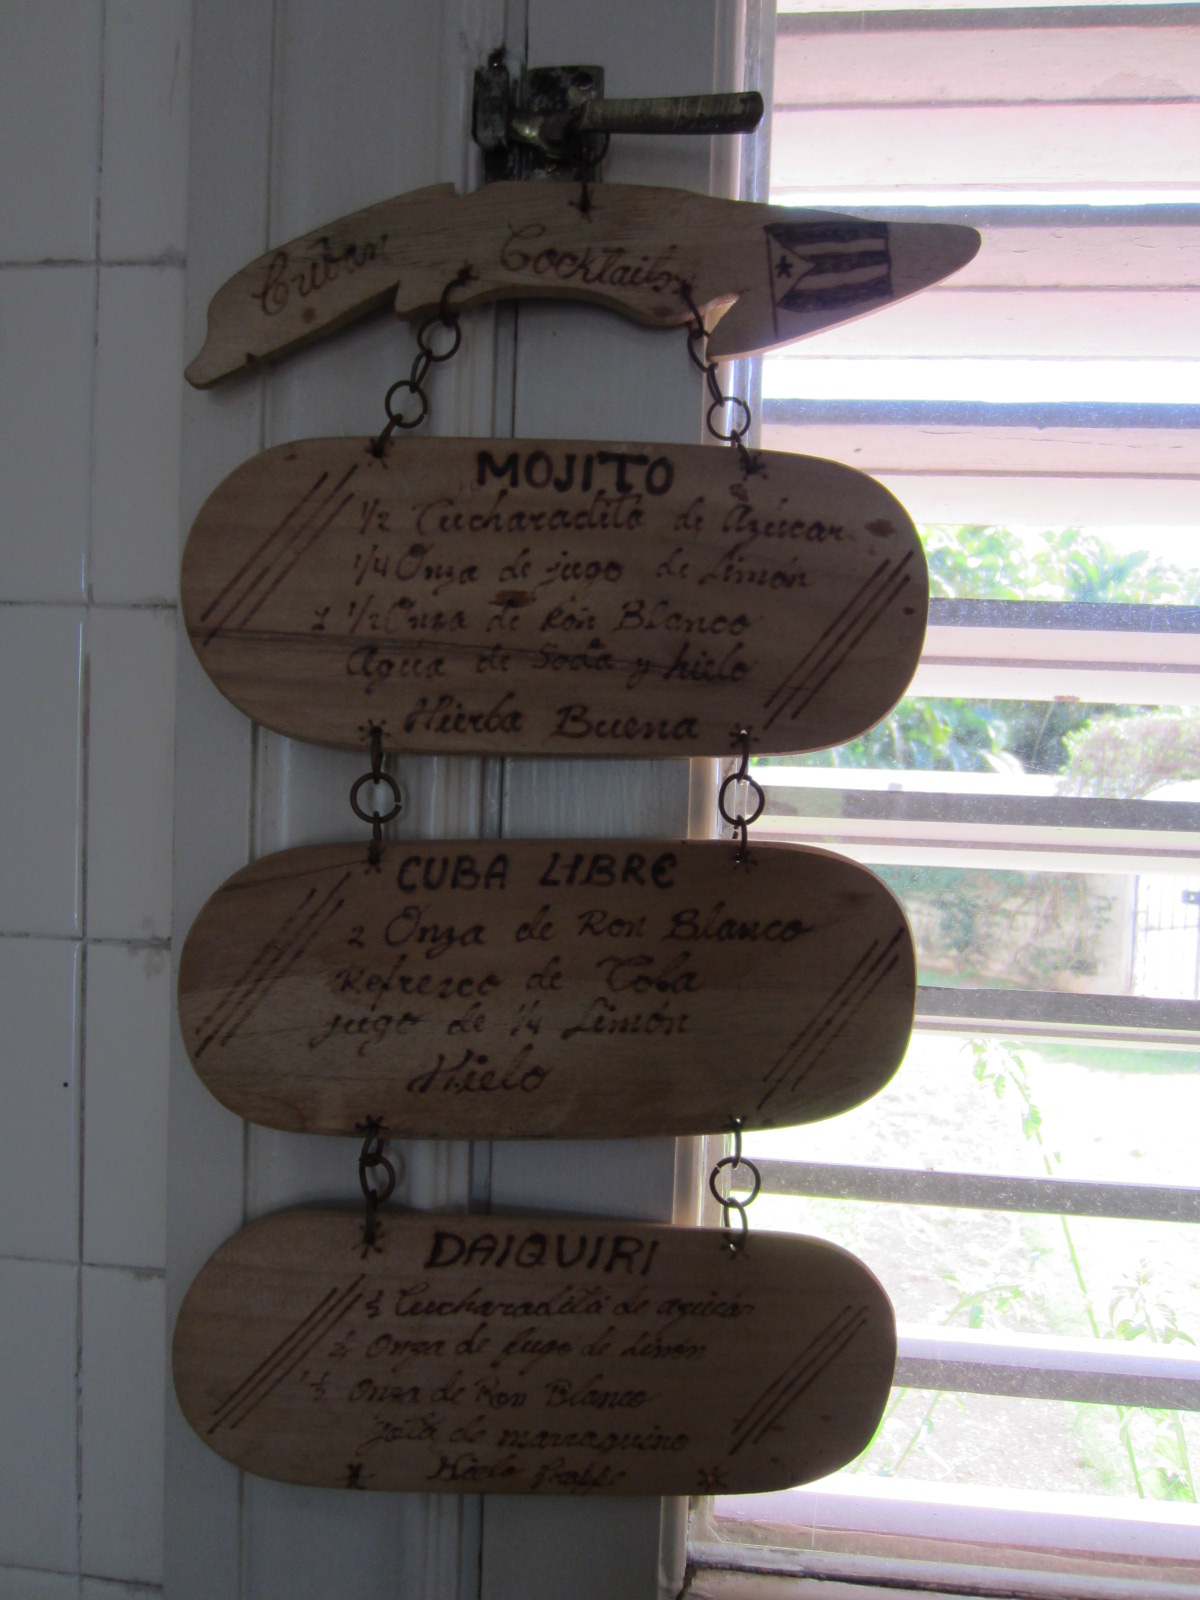 Cuban Cocktails
MOJITO
1/2 Cucharadita de Azúcar
1/4 Onza de jugo de Limón
1 1/2 Onza de Ron Blanco
Agua de Soda y hielo
Hierba Buena
CUBA LIBRE
2 Onza de Ron Blanco
Refrezco de Cola
jugo de 1/4 Limón
Hielo
DAIQUIRI
1/2 Cucharadita de azúcar
1/4 Onza de jugo de Limón
1 1/2 Onza de Ron Blanco
gota de marraquino
Hielo frappe